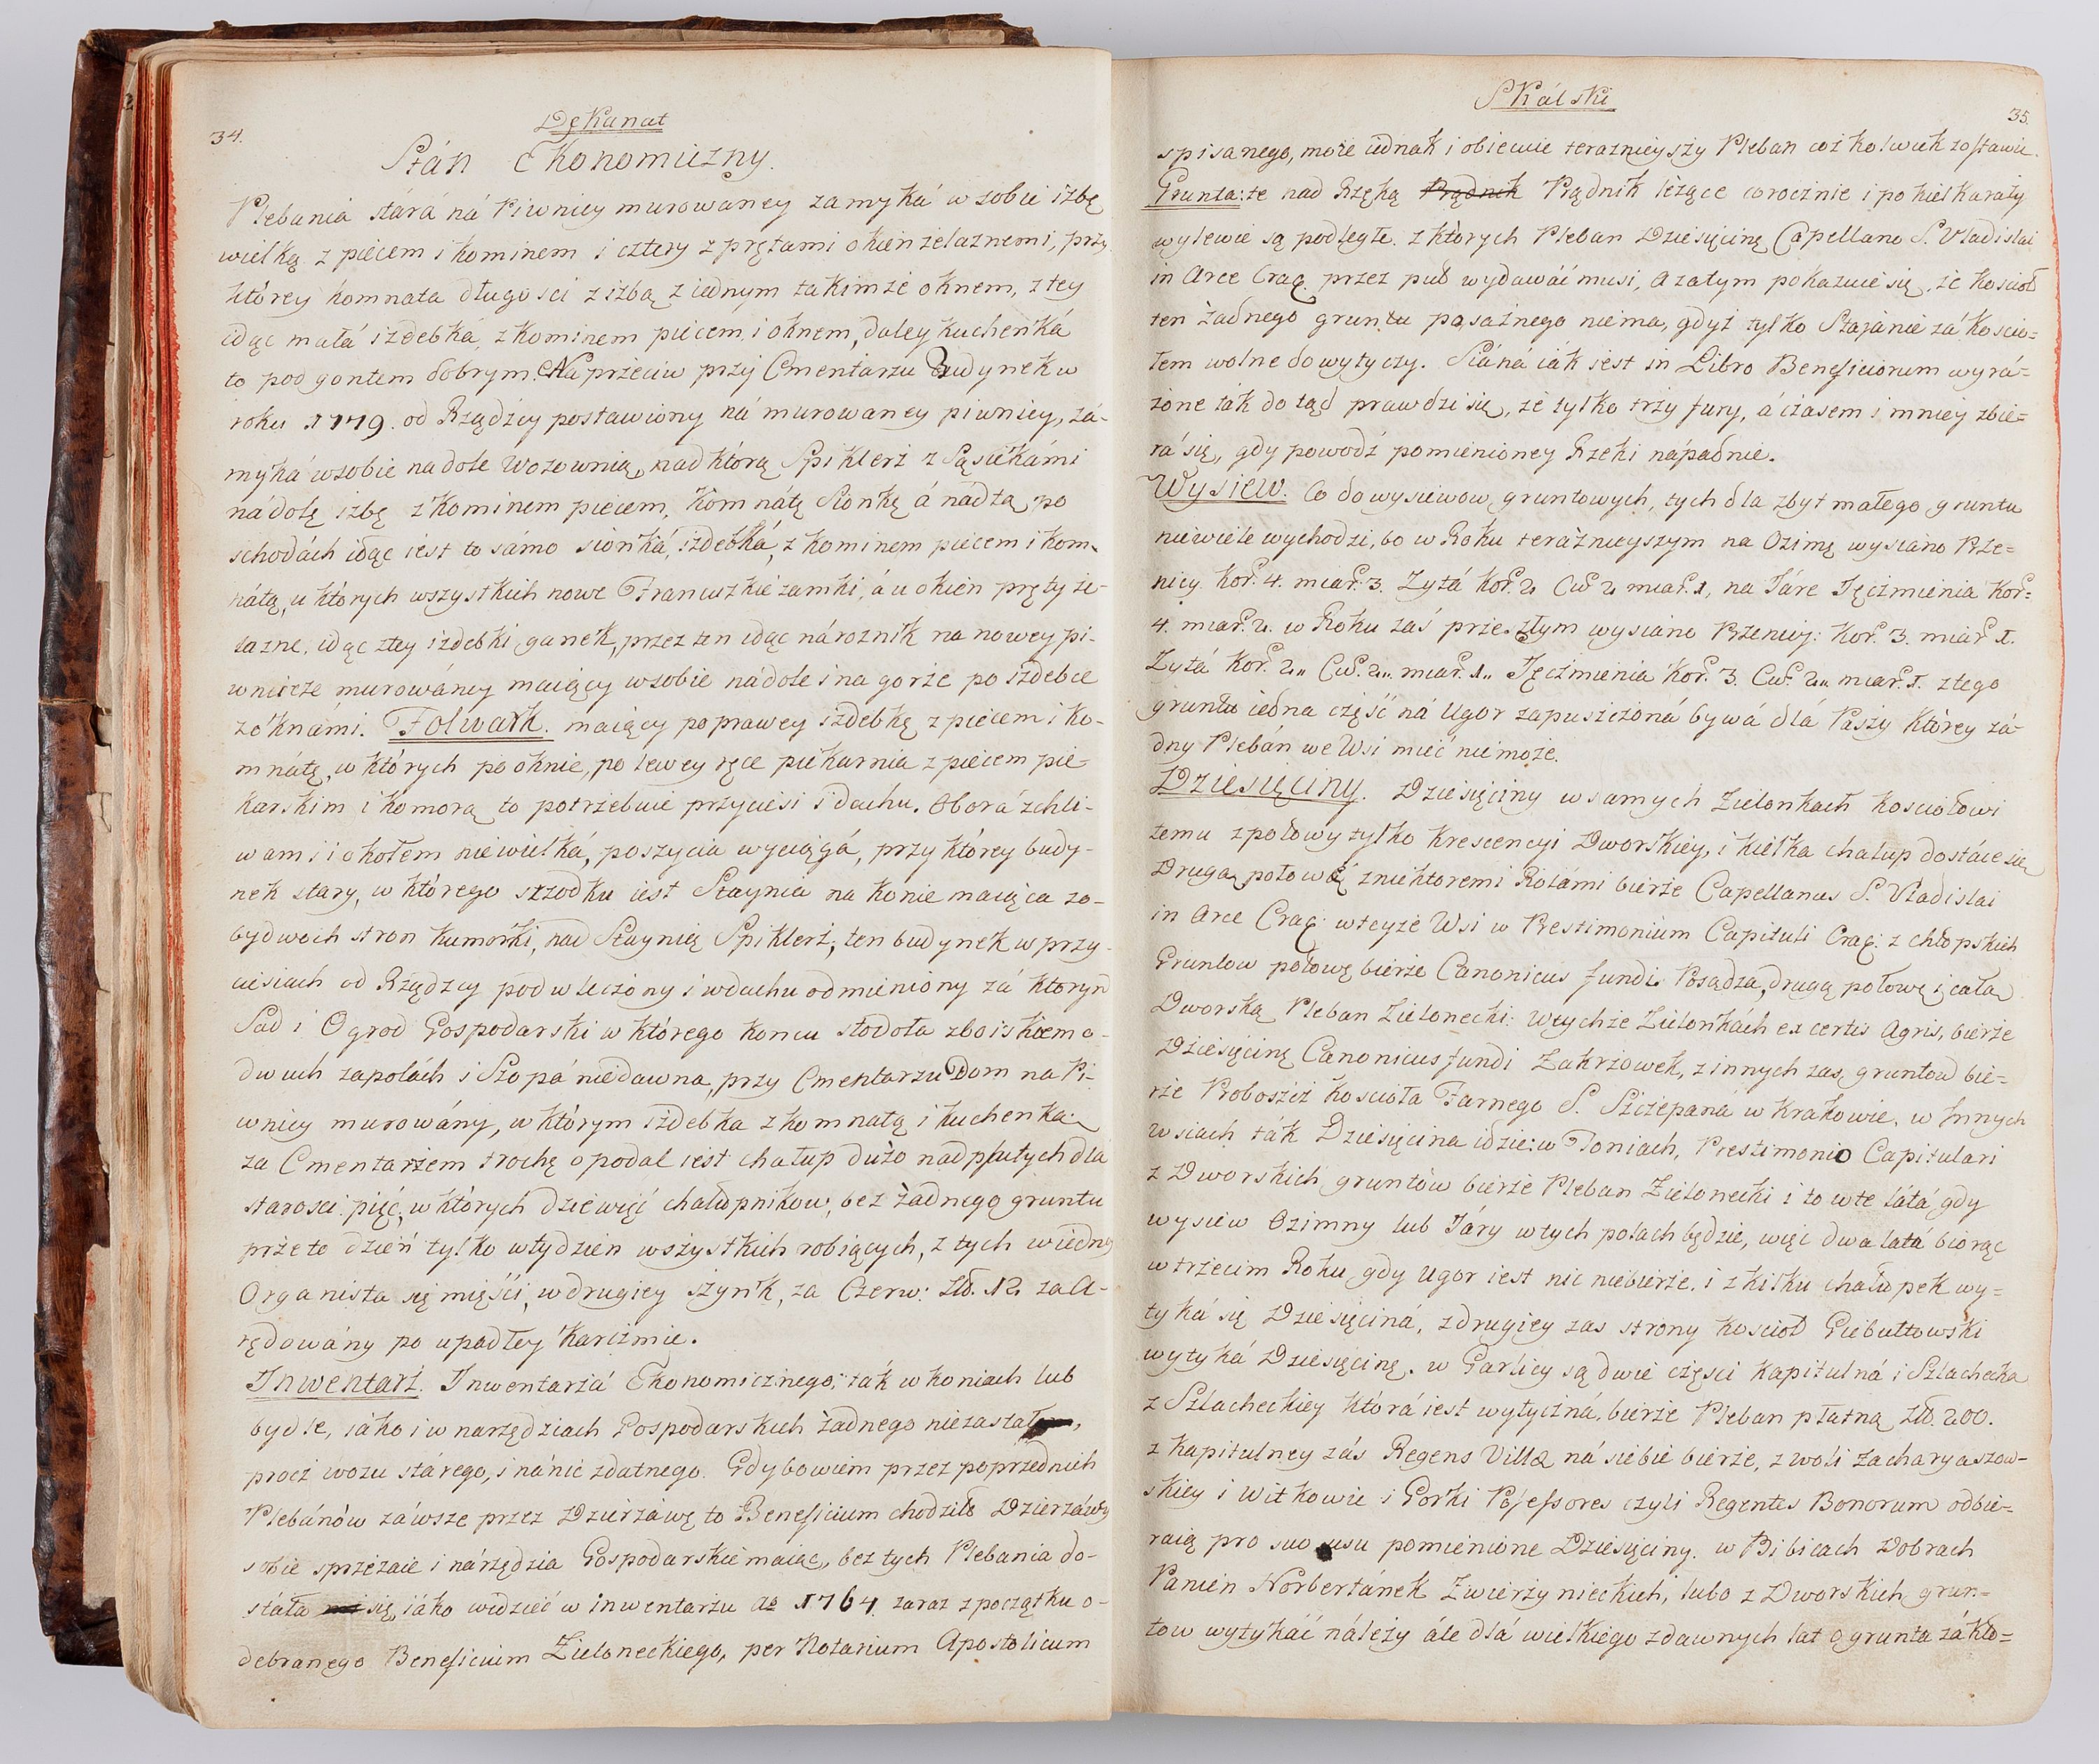 34.
Dekanat
Stán Ekonomiczny.
Plebania stárá ná Piwnicy murowaney zamyká w sobie izbę
wielką z piecem i kominem i cztery z prętami okien żelaznemi, przy
którey komnata długosci z izbą z iednym takimże oknem, z tey
idąc małá izdebká, z kominem piecem, i oknem, daley kuchenká
to pod gontem dobrym. Naprzeciw przy Cmentarzu Budynek w
roku 1779. od Rządzcy postawiony ná murowaney piwnicy, zá-
myká w sobie na dole Wozownią, nad którą Spiklerz z Sąsiekámi
ná dole izbę z kominem piecem, Komnátę Sionkę á nád tą po
schodách idąc iest to sámo sionká, izdebká, z kominem piecem i kom-
nátą, u których wszystkich nowe Francuzkie zamki, á u okien pręty że-
lazne, idąc z tey izdebki ganek, przez ten idąc náróżnik na nowey pi-
wnicze murowáney maiący w sobie ná dole i na gorze po izdebce
z oknámi. Folwark. maiący po prawey izdebkę z piecem i ko-
mnátę, w których po oknie, po lewey ręce piekarnia z piecem pie-
karskim i komorą to potrzebuie przyciesi i dachu. Oborá z chli-
wami i okołem niewielká, poszycia wyciągá, przy którey budy-
nek stary, w którego szrodku iest Staynia na konie maiąca z o-
bydwoch stron kumorki, nad Staynią Spiklerz, ten budynek w przy-
ciesiach od Rządzcy podwleczony i w dachu odmieniony zá którym
Sad i Ogrod Gospodarski w którego koncu stodoła z boiskiem o
dwuch zapolách i Szopá niedawna, przy Cmentarzu Dom na Pi-
wnicy murowány, w którym izdebka z komnatą i kuchenką
za Cmentarzem trochę opodal iest chałup dużo nadpsutych dla
starosci pięć, w których dziewięć chałupnikow, bez żadnego gruntu
prze te dzień tylko w tydzien wszystkich robiących, z tych w iedney
Organista się mięści, w drugiey szynk, za Czerw: Zł. 12 za a-
rędowány po upadłey karczmie.
Inwentarz. Inwentarzá Ekonomicznego, ták w koniach lub
bydle, iáko i w narzędziach Gospodarskich żadnego niezastał,
procz wozu stárego, i ná nic zdatnego. Gdy bowiem przez poprzednich
Plebánów záwsze przez Dzierżáwę to Beneficium chodziło Dzierżáwcy
sobie sprzężaie i nárzędzia Gospodarskie maiąc, bez tych Plebania do-
stáła się, iáko widzieć w inwentarzu do 1764. zaraz z początku o-
debranego Beneficium Zieloneckiego, per Notarium Apostolicum
Skálski
35.
spisanego, może iednak i obiecuie teraznieyszy Pleban coż kolwiek zostawić.
Grunta: te nad Rzęką Prądnik Prądnik leżące corocznie i po kielka raży
wylewie są podległe. z których Pleban Dziesięcinę Capellano S. Vladislai
in Arce Crac. przez puł wydawáć musi, a zatym pokazuie się, że kościoł
ten żadnego gruntu posażnego niema, gdyż tylko Stajánie zá kościo=
łem wolne do wytyczy. Siáná iák iest in Libro Beneficiorum wyrá-
żone ták do tąd prawdzi się, że tylko trzy fury, á czasem i mniey zbie=
rá się, gdy powodź pomienioney Rzeki nápadnie.
Wysiew. Co do wysiewow gruntowych, tych dla zbyt małego gruntu
niewiele wychodzi, bo w Roku teráźnieyszym na Ozimę wysiano Psze=
nicy kor. 4. miar. 3. Zytá kor. 2 Cw. 2 miar. 1, na Járe Jęczmienia Kor=
4. miar. 2. w Roku záś przeszłym wysiano Pszenicy: Kor. 3. miar 1.
Zytá Kor. 2,, Cw. 2,, miar. 1,, Jęczmienia Kor. 3. Cw. 2,, miar. 1. z tego
gruntu iedna część ná Ugor zapuszczoná bywá dlá Paszy którey zá-
dny Plebán we Wsi mieć niemoże.
Dziesięciny. Dziesięciny w samych Zielonkach kościołowi
temu z połowy tylko Krescencyi Dworskiey, i kielka chałup dostáie się
Drugą połowę z niektoremi Rolámi bierze Capellanus S. Vladislai
in Arce Crac: w teyże Wsi w Prestimonium Capituli Crac: z chłopskich
Gruntow połowę bierze Canonicus fundi Posądza, drugą połowę i całą
Dworską Pleban Zielonecki: W tychże Zielonkách ex certis Agris, bierze
Dziesięcinę Canonicus fundi Zakrzowek, z innych zaś gruntow bie=
rze Proboszcz kościoła Farnego S. Szczepana w Krakowie, w Innych
wsiach ták Dziesięcina idzie: w Toniach, Prestimonio Capitulari
z Dworskich gruntów bierze Pleban Zielonecki i to w te látá gdy
wysiew Ozimny lub Járy w tych polach będzie, więc dwa latá biorąc
w trzecim Roku gdy Ugor iest nic niebierze. i z kilku chałupek wy=
tyká się Dziesięciná, z drugiey zas strony kościoł Giebułtowski
wytyká Dziesięcinę. w Garlicy są dwie części Kapitulná i Szlachecka
z Szlacheckiey którá iest wytyczná, bierze Pleban płatną Zł. 200.
z Kapitulney záś Regens Villæ ná siebie bierze, z woli Zacharyaszow-
skiey i Witkowie i Gorki Possessores czyli Regentes Bonorum odbie=
raią pro suo usu pomienione Dziesięciny. w Bibicach Dobrach
Panien Norbertánek Zwierzynieckich, lubo z Dworskich grun=
tow wytykáć náleży ále dlá wielkiego z dawnych lat o grunta zákłó=